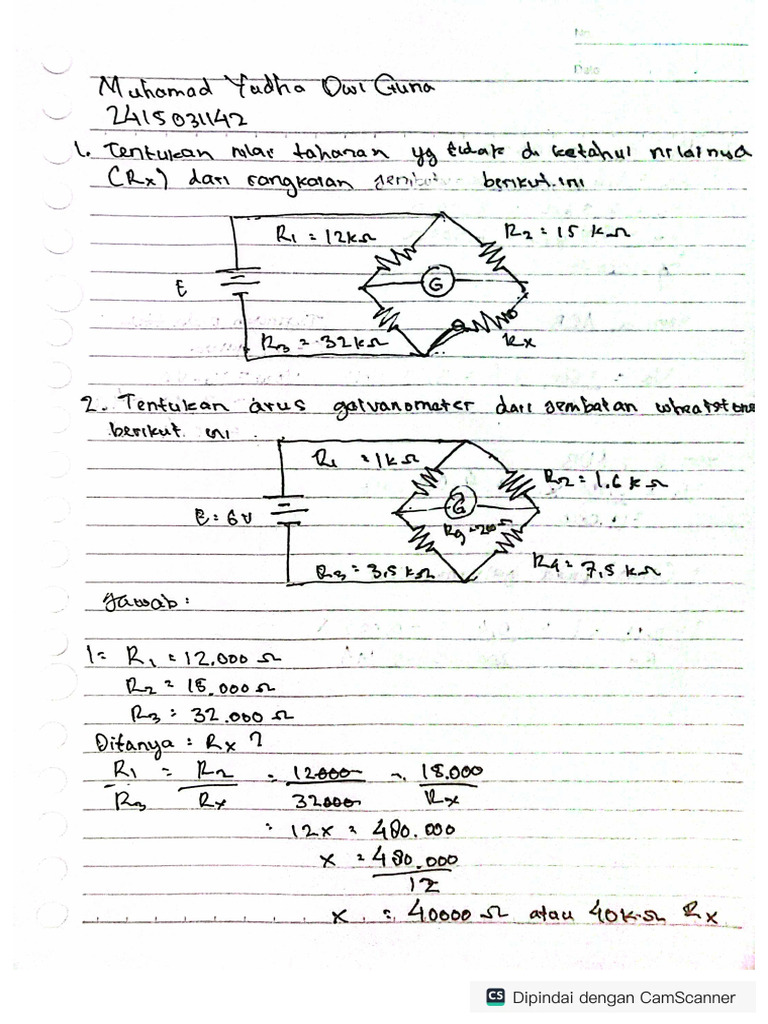 No
Date
Muhamad Yudha Dwi Guna
2415031142
1. Tentukan nilai tahanan yg tidak di ketahui nilainya
(Rx) dari rangkaian jembatan berikut.ini
R1 = 12kΩ
R2 = 15 kΩ
E
G
R3 = 32kΩ
Rx
2. Tentukan arus galvanometer dari jembatan wheatstone
berikut ini
R1 = 1kΩ
R2 = 1.6 kΩ
E = 6v
G
Rg = 200 Ω
R3 = 3,5 kΩ
R4 = 7,5 kΩ
Jawab :
1 = R1 = 12.000 Ω
R2 = 15.000 Ω
R3 = 32.000 Ω
Ditanya : Rx ?
R1/R3 = R2/Rx = 12000/32000 = 15.000/Rx
= 12x = 480.000
x = 480.000/12
x = 40000 Ω atau 40kΩ Rx
CS Dipindai dengan CamScanner